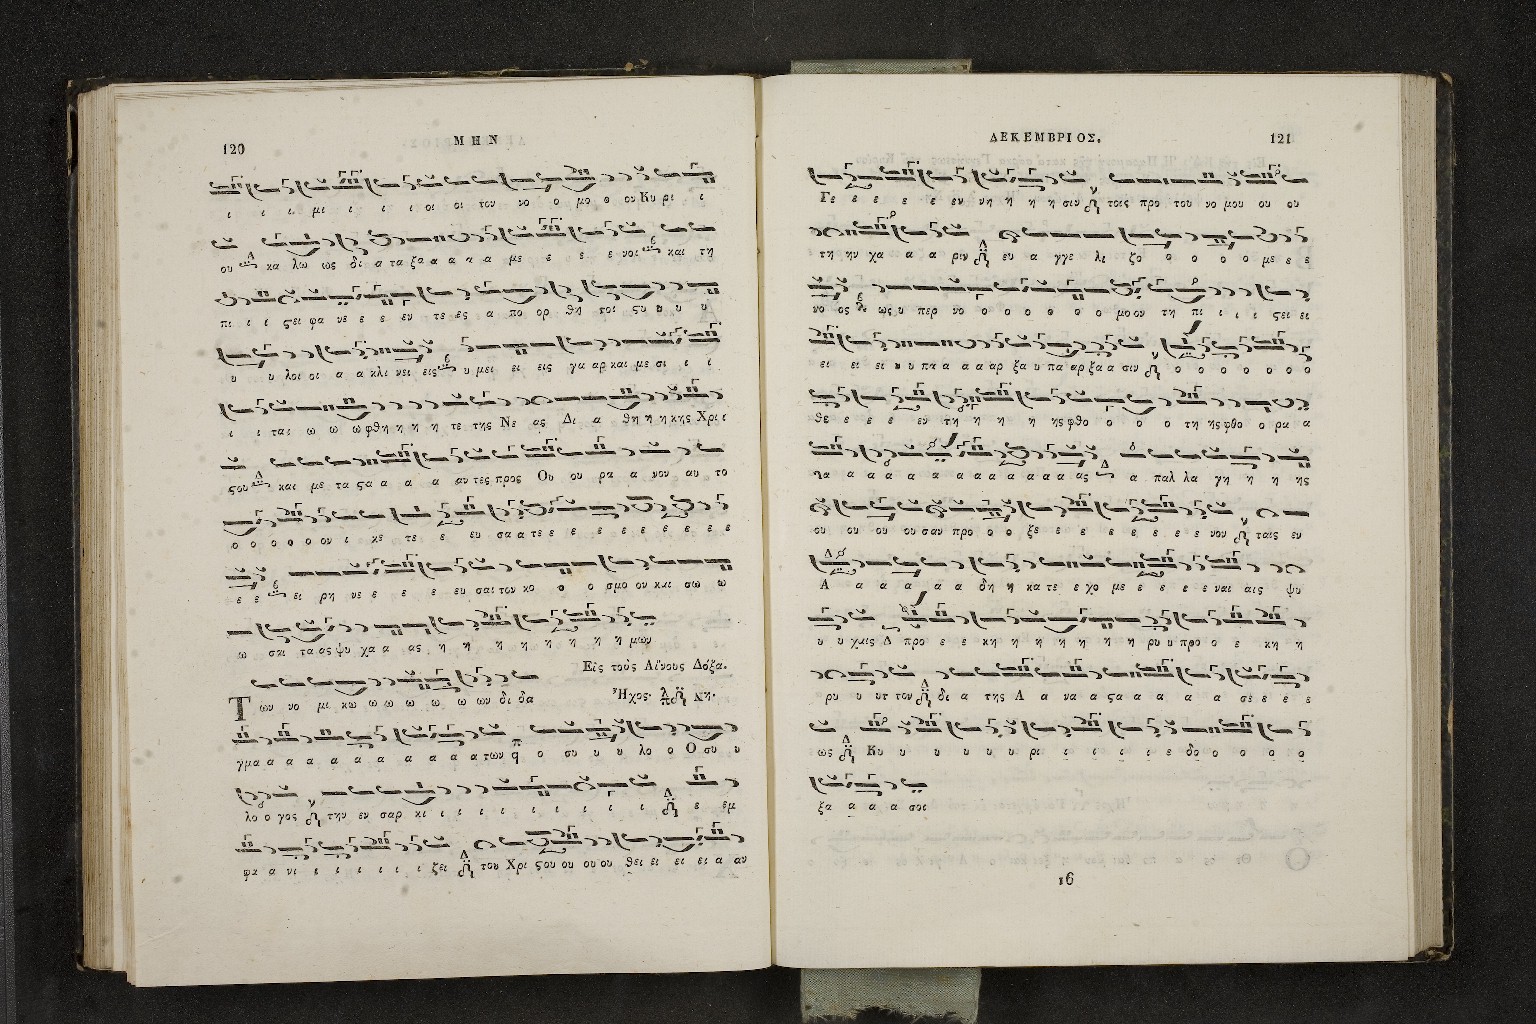 120
ΜΗΝ
ι ι ι μι ι ι ι οι οι του νο ο μο θ ου Κυ ρι ι
ου κα λω ως δι α τα ξα α α α α με ε ε ε νοι και τη
πι ι ι ςει φα νε ε ε εν τε ες α πο ορ θη τοι ςυ υ υ υ
υ υ λοι οι α α κλι νει εις υ μει ει εις γα αρ και με σι ι ι
ι ι ται ω ω ω φθη η η η τε της Νε ας Δι α θη η η κης Χρι ι
ςου και με τα ςα α α α αν τες προς Ου ου ρα α νον αυ το
ο ο ο ο ο ον ι κε τε ε ευ σα α τε ε ε ε ε ε ε ε ε ε
ε ε ει ρη νε ε ε ε ε ευ σαι τον κο ο ο σμο ον και σω ω
ω σαι τα ας ψυ χα α ας η η η η η η η η μων
Εἰς τοὺς Αἴνους Δόξα.
Των νο μι κω ω ω ω ω ω ων δι δα
Ἦχος. Νη.
γμα α α α α α α α α α α των ο συ υ υ λο ο Ο συ υ
λο ο γος την εν σαρ κι ι ι ι ι ι ι ι ι ι ε εμ
φα α νι ι ι ι ι ι ι ζει του Χρι ςου ου ου ου θει ει ει ει α αν
ΔΕΚΕΜΒΡΙΟΣ.
121
Γε ε ε ε ε εν νη η η η σιν τοις προ του νο μου ου ου
τη ην χα α α ριν ευ α γγε λι ζο ο ο ο ο με ε ε
νο ος ως υ περ νο ο ο ο ο ο ο μο ον τη πι ι ι ι ςει ει
ει ει ει υ υ πα α α α αρ ξα υ πα αρ ξα α σιν ο ο ο ο ο ο ο
θε ε ε ε εν τη η η η ης φθο ο ο ο τη ης φθο ο ρα α
α α α α α α α α α α α α α ας α παλ λα γη η η ης
ου ου ου ου σαν προ ο ο ξε ε ε ε ε ε ε ε νον ταις εν
Α α α α α α δη η κα τε ε χο με ε ε ε ε ναι αις ψυ
υ υ χαις Δ προ ε ε κη η η η η η η η ρυ υ προ ο ε κη η
ρυ υ υτ τον δι α της Α α να α ςα α α α α σε ε ε ε
ως Κυ υ υ υ υ υ υ ρι ι ι ι ι ε δο ο ο ο ο
ξα α α α σοι
16